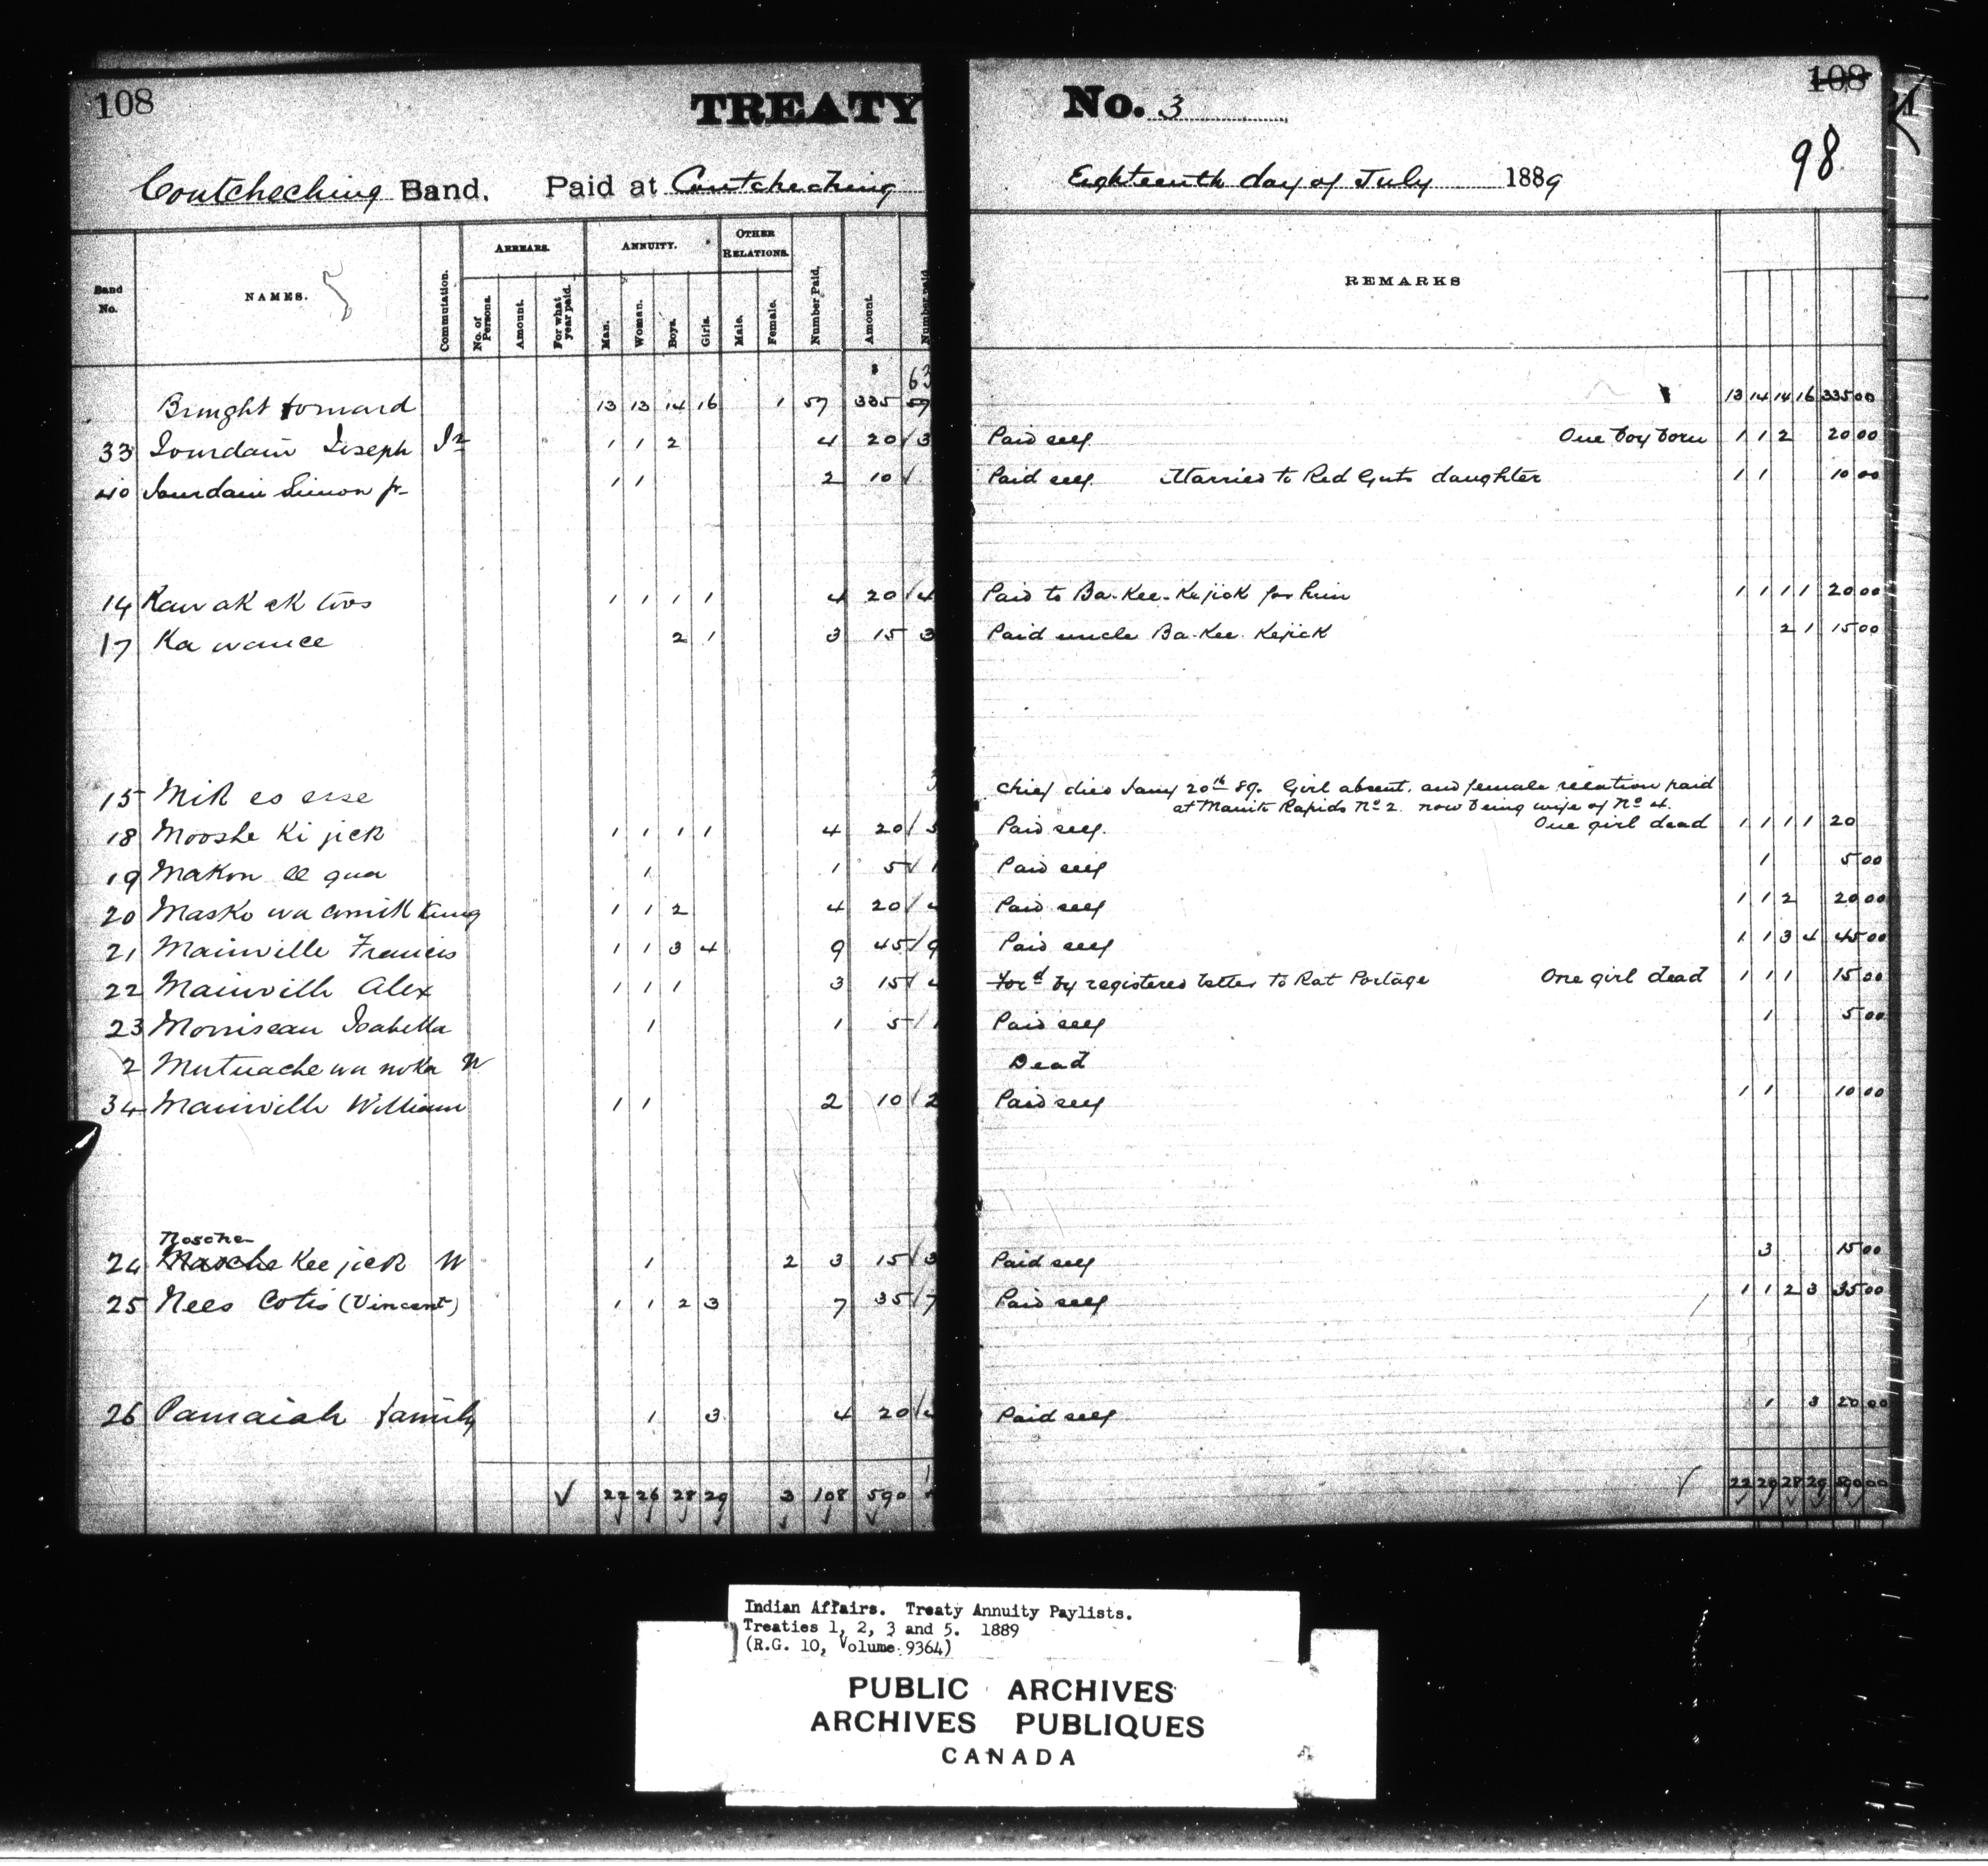 108 TREATY No. 3 108
98
Coutcheching Band. Paid at Coutcheching Eighteenth day of July 1889
Band No. NAMES. Commutation. ARREARS. No. of Persons. Amount. For what year paid. ANNUITY. Man. Woman. Boys. Girls. OTHER RELATIONS. Male. Female. Number Paid. Amount. Number paid REMARKS
63
Brought forward 13 13 14 16 1 57 335 57 13 14 14 16 335 00
33 Jourdain Joseph Jr 1 1 2 4 20 3 Paid self One boy born 1 1 2 20 00
40 Jourdain Simon jr 1 1 2 10 Paid self Married to Red Guts daughter 1 1 10 00
14 Kaw ak ak toos 1 1 1 1 4 20 4 Paid to Ba-Kee-Kejick for him 1 1 1 1 20 00
17 Ka wance 2 1 3 15 3 Paid uncle Ba-Kee-Kejick 2 1 15 00
15 Mik es esse 3 Chief died Jany 20th 89. Girl absent. and female relation paid
at Manito Rapids No 2. now being wife of No 4.
18 Mooshe Ki jick 1 1 1 1 4 20 5 Paid self. One girl dead 1 1 1 1 20
19 Makon ee qua 1 1 5 1 Paid self 1 5 00
20 Masko wa comik kung 1 1 2 4 20 4 Paid self 1 1 2 20 00
21 Mainville Francis 1 1 3 4 9 45 9 Paid self 1 1 3 4 45 00
22 Mainville Alex 1 1 1 3 15 4 For'd by registered letter to Rat Portage One girl dead 1 1 1 15 00
23 Morriseau Isabella 1 1 5 1 Paid self 1 5 00
2 Mutuache wa noka W Dead
34 Mainville William 1 1 2 10 2 Paid self 1 1 10 00
Nosche
24 Masche Kee jick W 1 2 3 15 3 Paid self 3 15 00
25 Nees Cotis (Vincent) 1 1 2 3 7 35 7 Paid self 1 1 2 3 35 00
26 Pamaiah family 1 3 4 20 4 Paid self 1 3 20 00
22 26 28 29 3 108 590 22 29 28 29 590 00
Indian Affairs. Treaty Annuity Paylists.
Treaties 1, 2, 3 and 5. 1889
(R.G. 10, Volume 9364)
PUBLIC ARCHIVES
ARCHIVES PUBLIQUES
CANADA